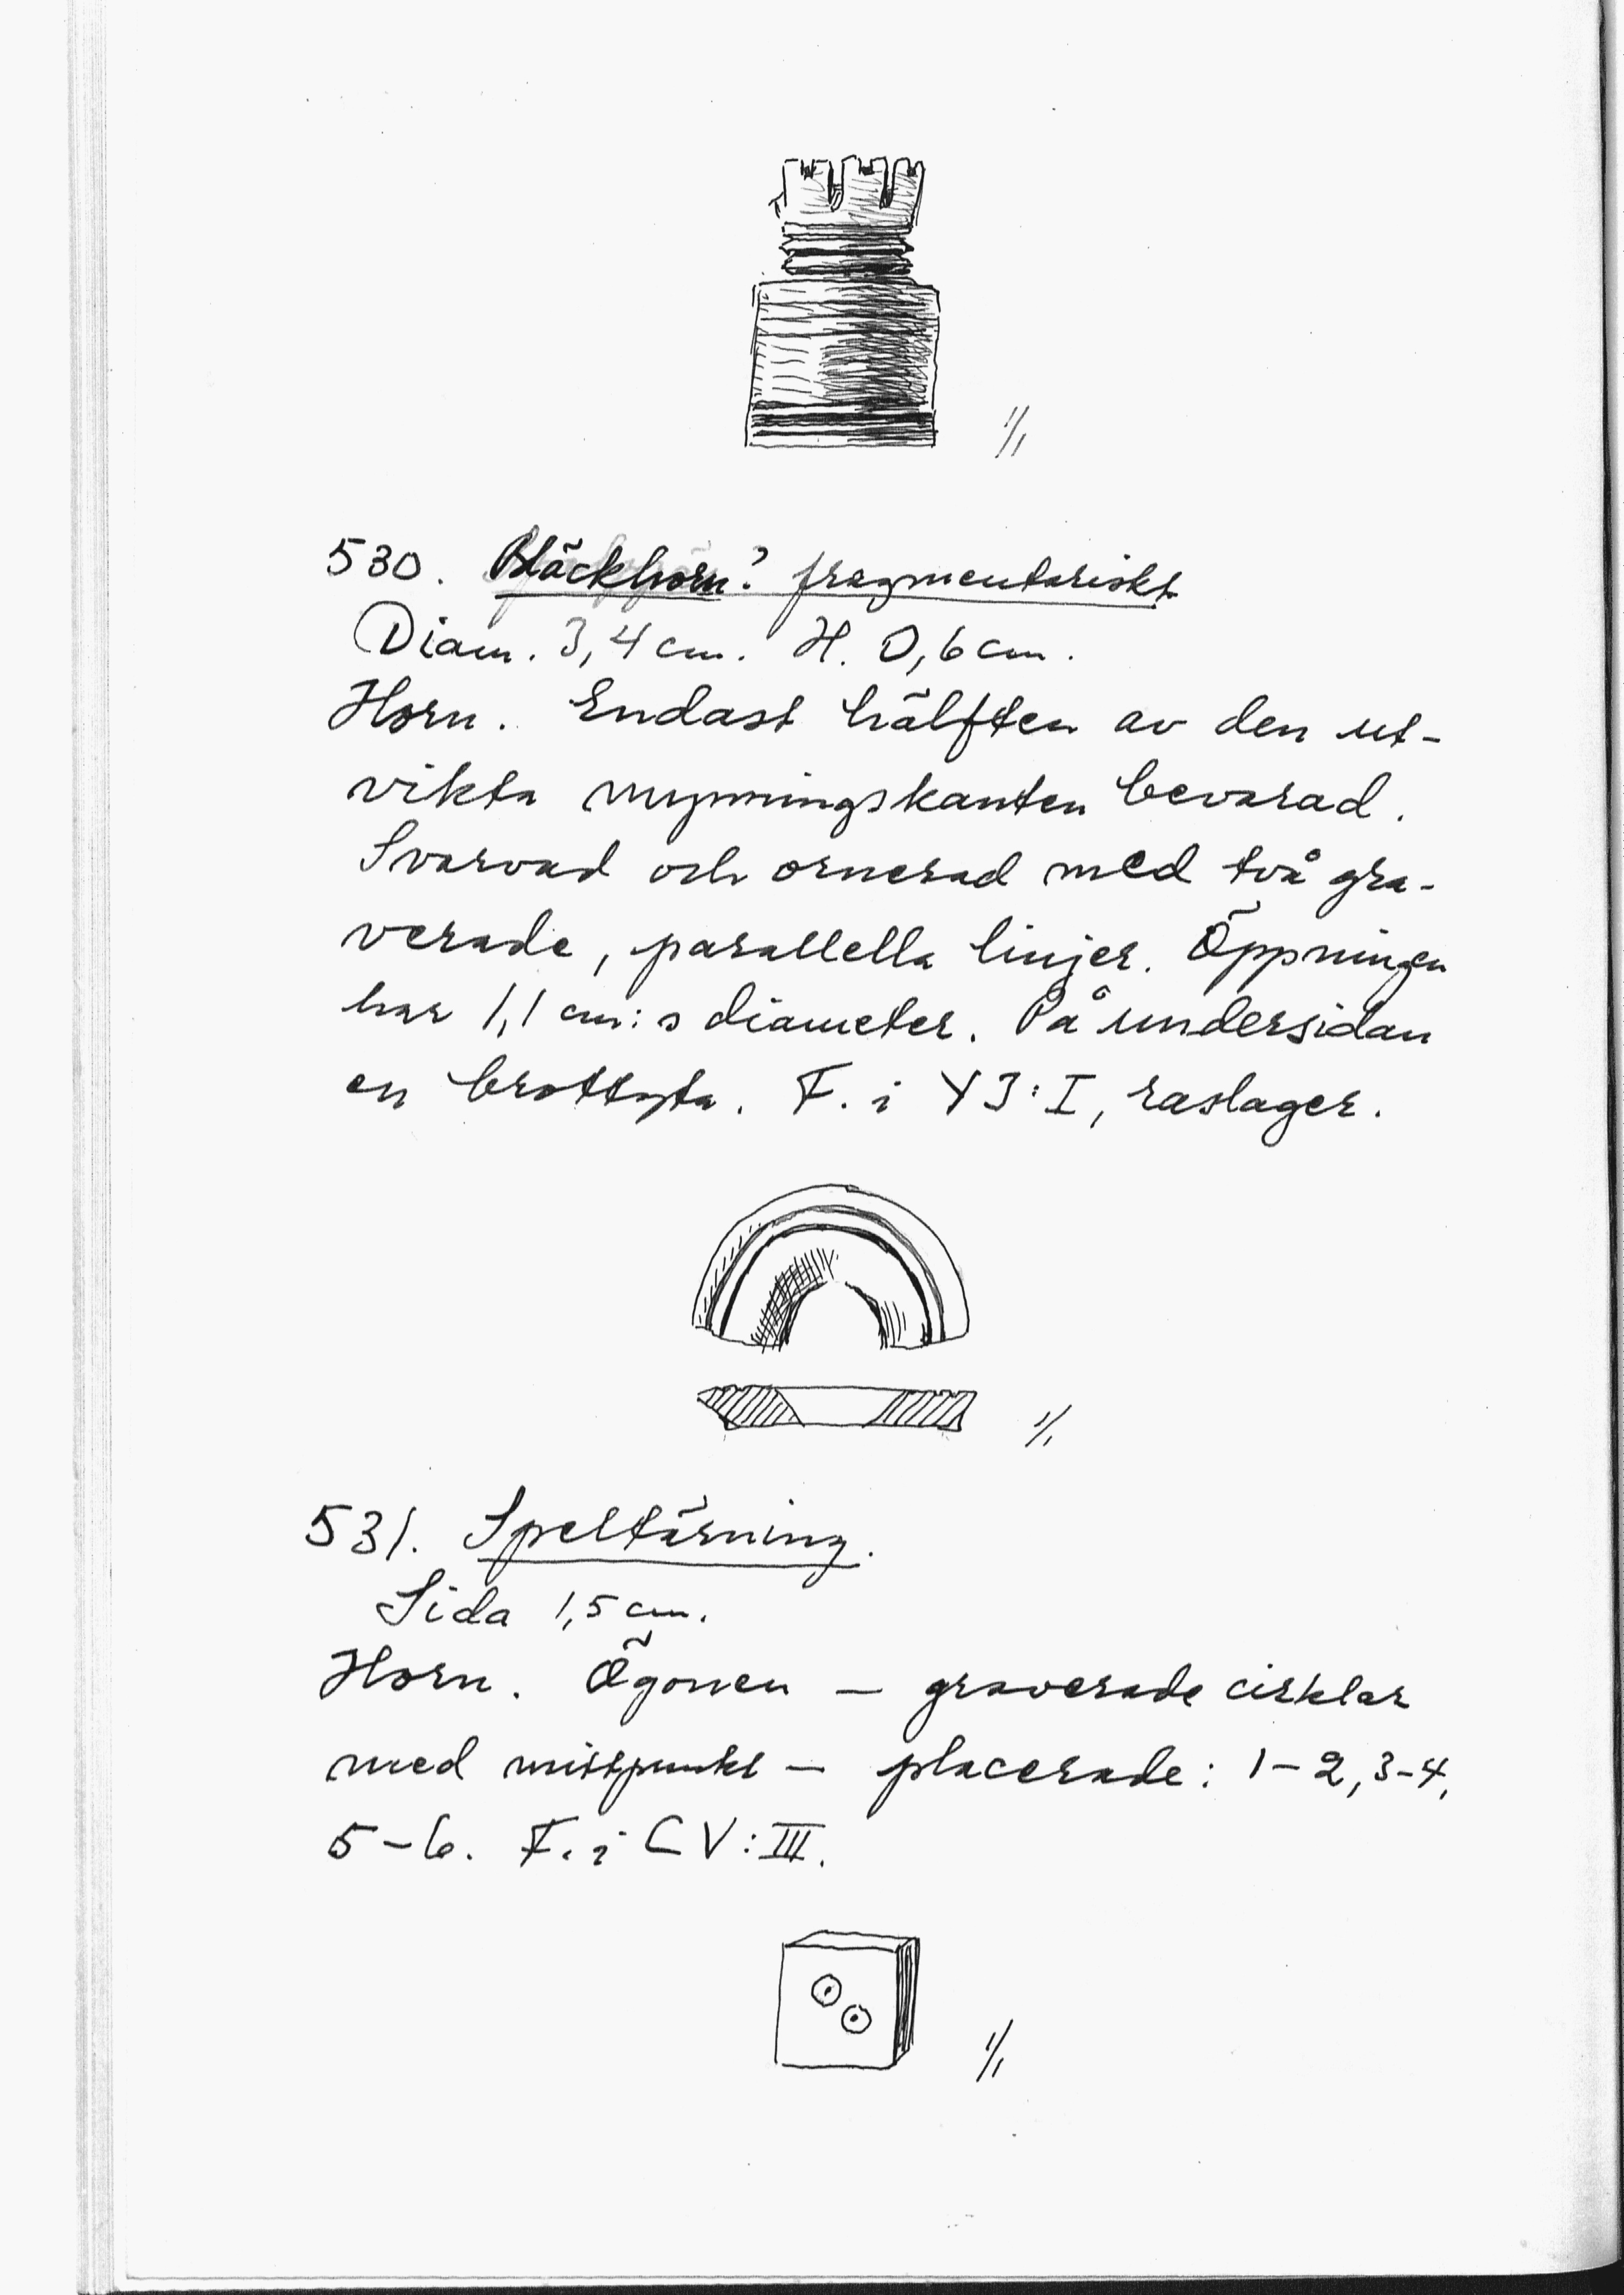 1/1
530. Bläckhorn? fragmentariskt
Diam. 3,4 cm. H. 0,6 cm.
Horn. Endast hälften av den ut-
vikta mynningskanten bevarad.
Svarvad och ornerad med två gra-
verade, parallella linjer. Öppningen
har 1,1 cm:s diameter. På undersidan
en brottyta. F. i Y3:I, raslager.
1/1
531. Speltärning.
Sida 1,5 cm.
Horn. Ögonen — graverade cirklar
med mittpunkt — placerade: 1-2, 3-4,
5-6. F. i CV:III.
1/1